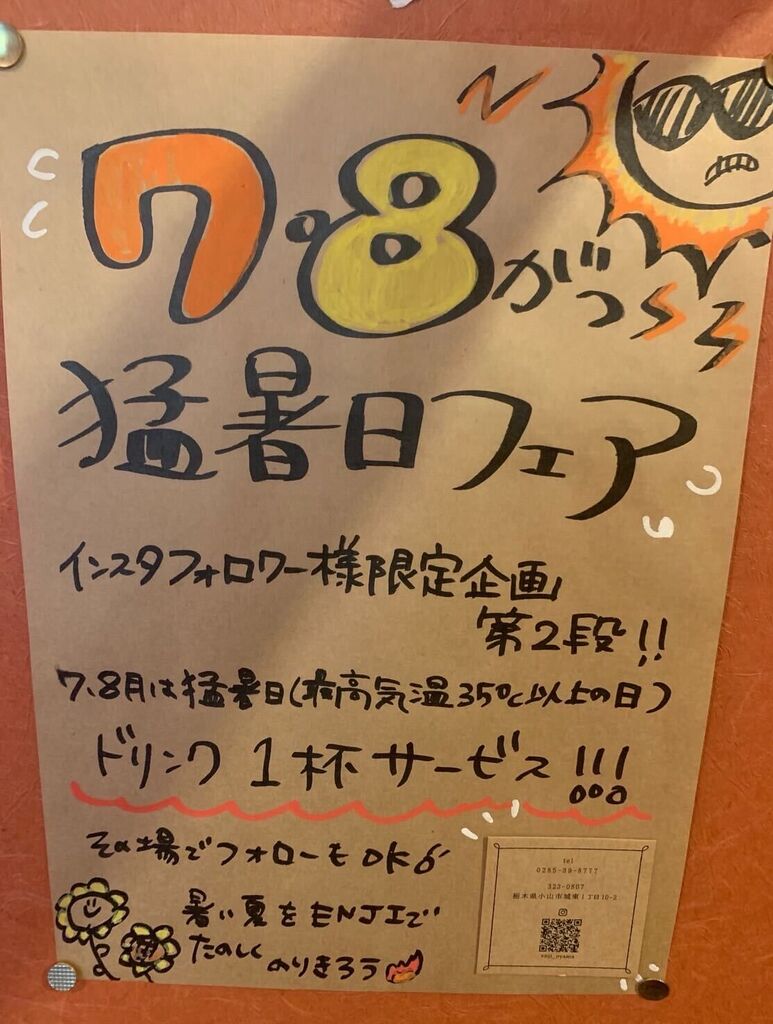 7.8がつ
猛暑日フェア
インスタフォロワー様限定企画
第2段!!
7、8月は猛暑日(最高気温35℃以上の日)
ドリンク1杯サービス!!!
その場でフォローもOK
暑い夏をENJIで
たのしく
のりきろう
tel
0285-39-8777
323-0807
栃木県小山市城東1丁目10-2